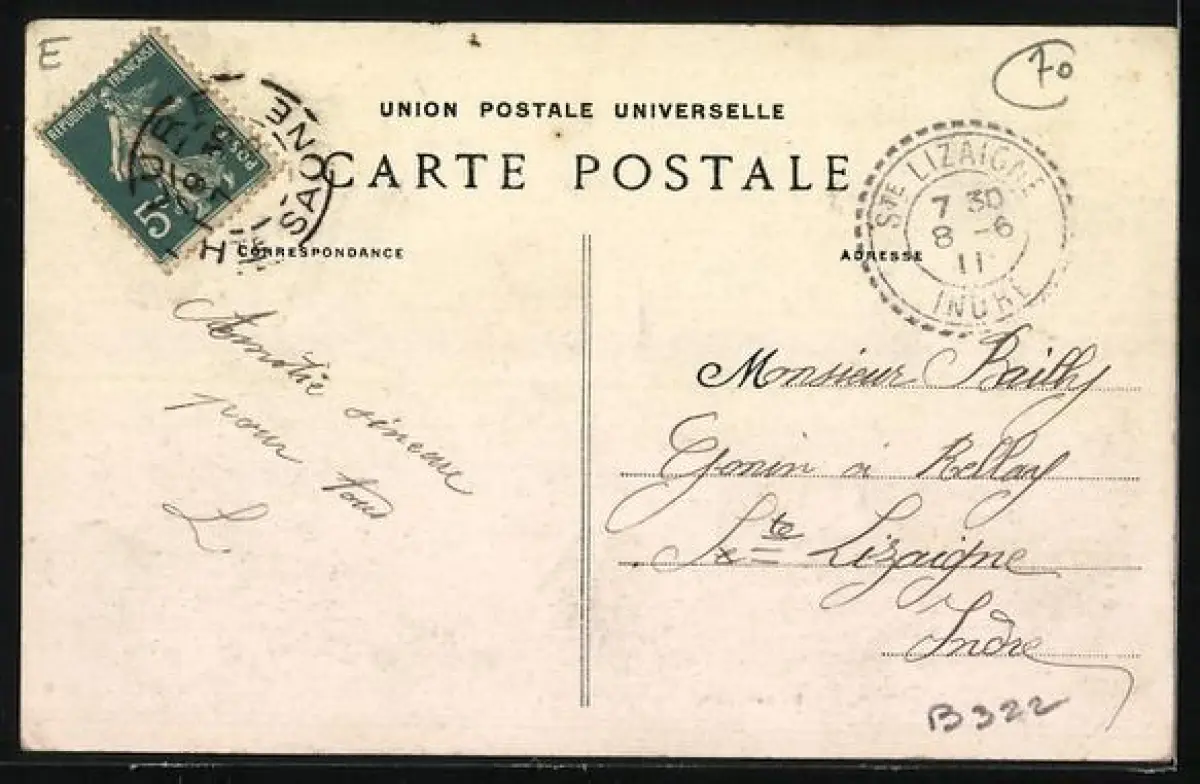 E
70
RÉPUBLIQUE FRANÇAISE
POSTES
5
SAONE
H
UNION POSTALE UNIVERSELLE
CARTE POSTALE
CORRESPONDANCE
ADRESSE
STE LIZAIGNE
7 30
8 -6
11
INDRE
Amitié sincère
pour tous
L.
Monsieur Bailly
Gonin à Rellay
Ste Lizaigne
Indre
B322